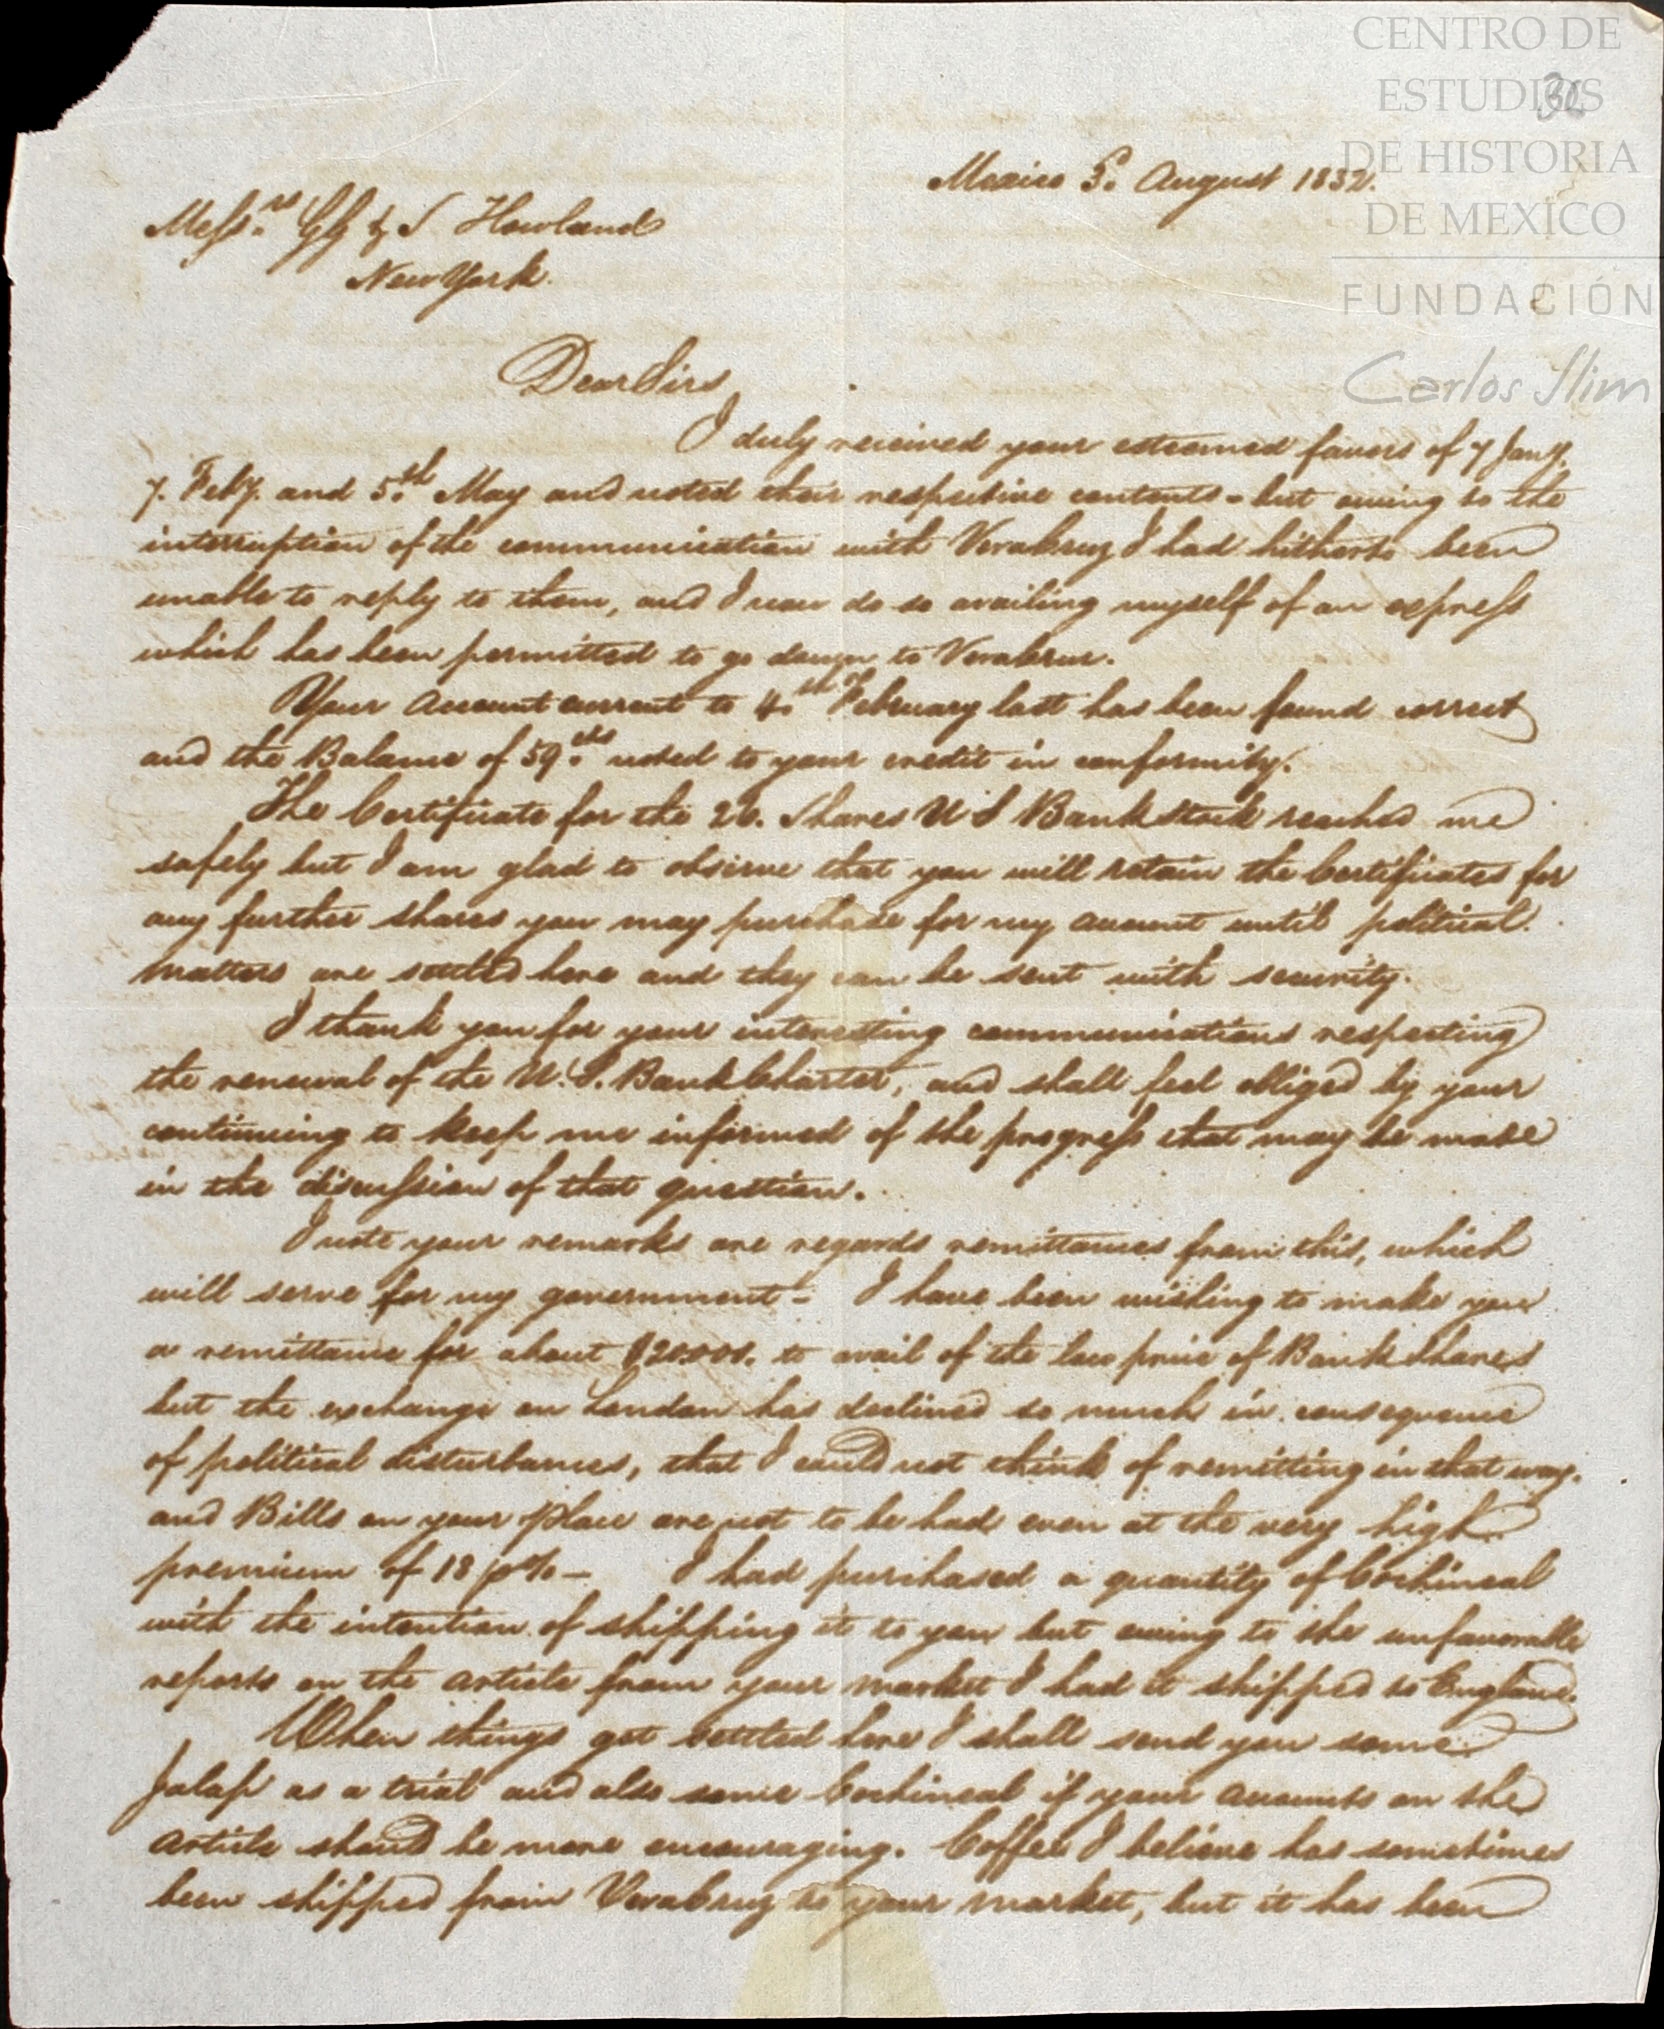 CENTRO DE
ESTUDIOS
DE HISTORIA
DE MEXICO
FUNDACIÓN
Carlos Slim
Mexico 5. August 1832.
Messrs. GG & S Howland
New York.
Dear Sirs
I duly received your esteemed favors of 7 Jany.
7. Feby. and 5.th May and noted their respective contents - but owing to the
interruption of the communication with Verabruz I had hitherto been
unable to reply to them, and I now do so availing myself of an express
which has been permitted to go down to Verabruz.
Your Account current to 4.th February last has been found correct
and the Balance of 59.cts noted to your credit in conformity.
The Certificate for the 26. Shares U S Bank stock reached me
safely but I am glad to observe that you will retain the Certificates for
any further shares you may purchase for my account until political
matters are settled here and they can be sent with security.
I thank you for your interesting communications respecting
the renewal of the U.S. Bank Charter, and shall feel obliged by your
continuing to keep me informed of the progress that may be made
in the discussion of that question.
I note your remarks are regards remittances from this, which
will serve for my government - I have been wishing to make you
a remittance for about $20.000. to avail of the low price of Bank Shares
but the exchange on London has declined so much in consequence
of political disturbances, that I could not think of remitting in that way.
and Bills on your place are not to be had even at the very high
premium of 18 p% - I had purchased a quantity of Cochineal
with the intention of shipping it to you but owing to the unfavorable
reports on the article from your market I had it shipped to England.
When things get settled here I shall send you some
Jalap as a trial and also some Cochineal if your accounts on the
article should be more encouraging. Coffee I believe has sometimes
been shipped from Verabruz to your market, but it has been